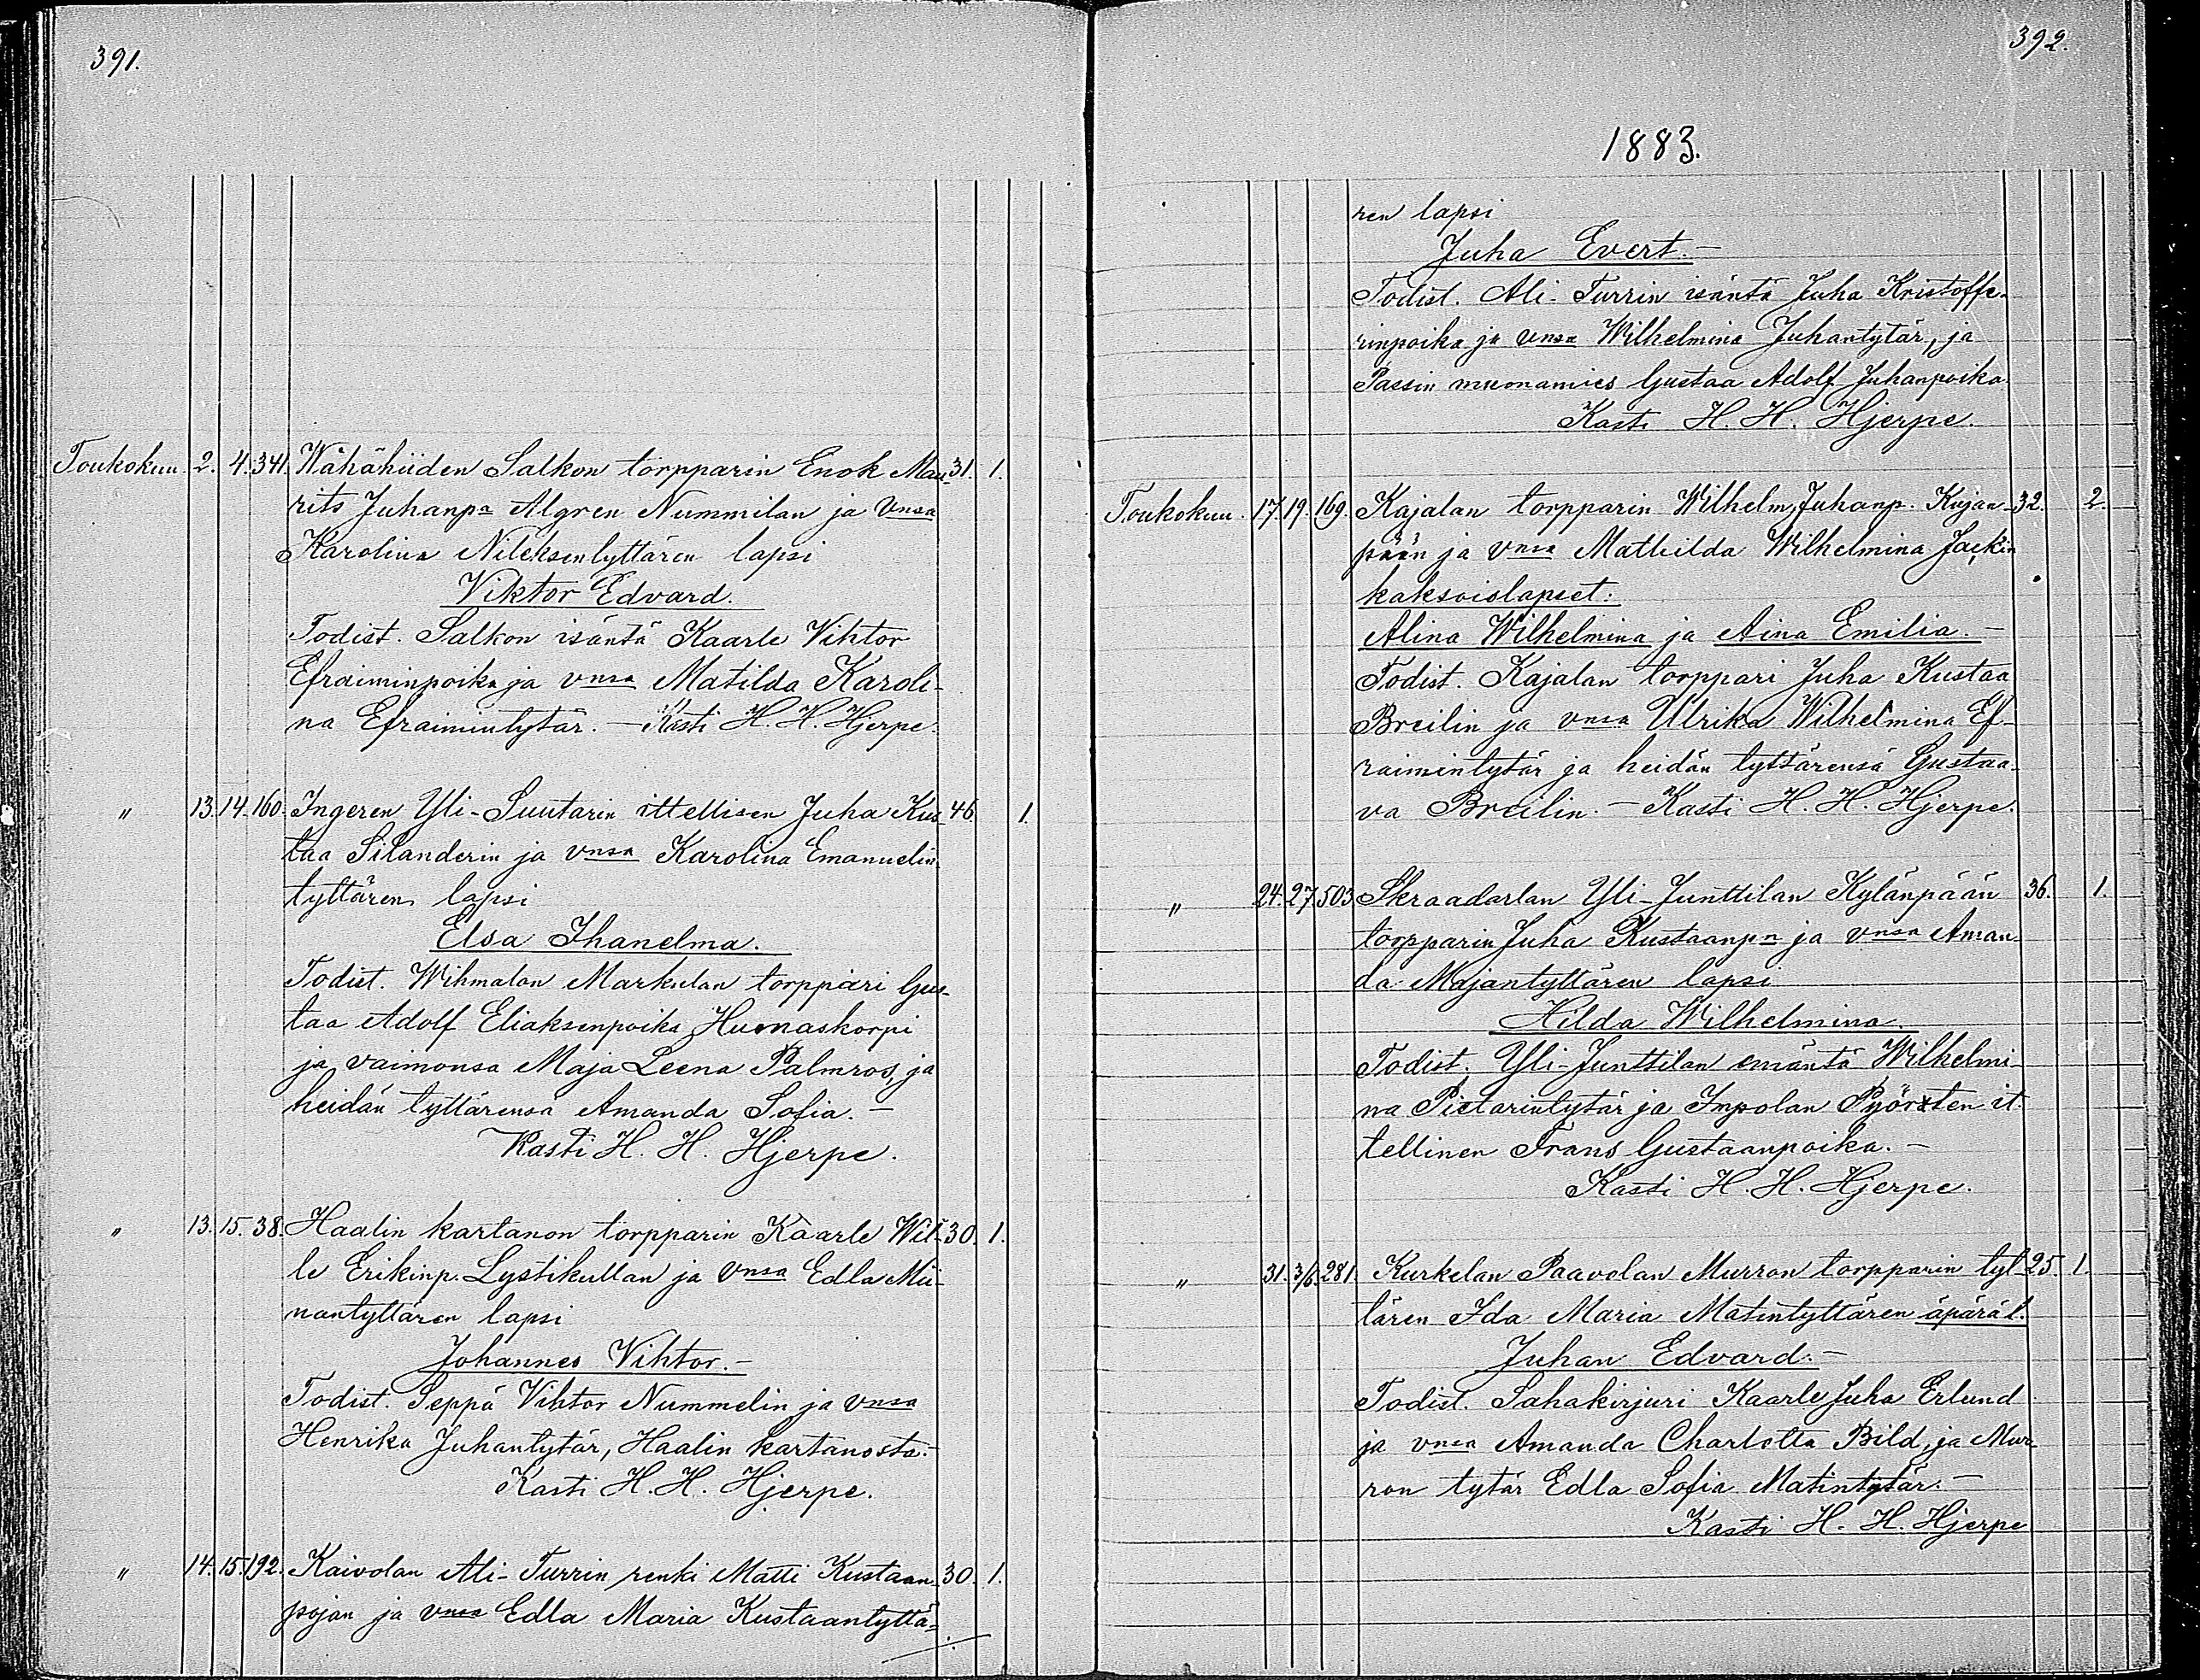 391.
Toukokuu. 2. 4. 341. Wähähiiden Salkon torpparin Enok Mau- 31. 1.
rits Juhanpn Algren Nummilan ja vnsa
Karolina Nileksentyttären lapsi
Viktor Edvard.
Todist. Salkon isäntä Kaarle Vihtor
Efraiminpoika ja vnsa Matilda Karoli-
na Efraimintytär. — Kasti H. H. Hjerpe.
" 13. 14. 160. Ingeren Yli-Suutarin ittellisen Juha Kus- 46. 1.
taa Silanderin ja vnsa Karolina Emanuelin-
tyttären lapsi
Elsa Ihanelma.
Todist. Wihmalan Markulan torppari Gus-
taa Adolf Eliaksenpoika Humaskorpi
ja vaimonsa Maja Leena Palmros, ja
heidän tyttärensä Amanda Sofia. —
Kasti H. H. Hjerpe.
" 13. 15. 38. Haalin kartanon torpparin Kaarle Wil- 30. 1.
le Erikinp. Lystikullan ja vnsa Edla Mii-
nantyttären lapsi
Johannes Vihtor. —
Todist. Seppä Vihtor Nummelin ja vnsa
Henrika Juhantytär, Haalin kartanosta. —
Kasti H. H. Hjerpe.
" 14. 15. 192. Kaivolan Ali-Turrin renki Matti Kustaan- 30. 1.
pojan ja vnsa Edla Maria Kustaantyttä-
392.
1883.
ren lapsi
Juha Evert. —
Todist. Ali-Turrin isäntä Juha Kristoffe-
rinpoika ja vnsa Wilhelmina Juhantytär, ja
Passin muonamies Gustaa Adolf Juhanpoika.
Kasti H. H. Hjerpe.
Toukokuu. 17. 19. 169. Kajalan torpparin Wilhelm Juhanp. Kujan- 32. 2.
pään ja vnsa Mathilda Wilhelmina Jackin
kaksoislapset:
Alina Wilhelmina ja Aina Emilia. —
Todist. Kajalan torppari Juha Kustaa
Breilin ja vnsa Ulrika Wilhelmina Ef-
raimintytär ja heidän tyttärensä Gustaa-
va Breilin. — Kasti H. H. Hjerpe.
" 24. 27. 503 Skraadarlan Yli-Junttilan Kylänpään 36. 1.
torpparin Juha Kustaanpn ja vnsa Aman-
da Majantyttären lapsi
Hilda Wilhelmina.
Todist. Yli-Junttilan emäntä Wilhelmi-
na Pietarintytär ja Impolan Pyörsten it-
tellinen Frans Gustaanpoika. —
Kasti H. H. Hjerpe.
" 31. 3/6. 281. Kurkelan Paavolan Murron torpparin tyt- 25. 1.
tären Ida Maria Matintyttären äpärä l.
Juhan Edvard. —
Todist. Sahakirjuri Kaarle Juha Erlund
ja vnsa Amanda Charlotta Bild, ja Mur-
ron tytär Edla Sofia Matintytär. —
Kasti H. H. Hjerpe